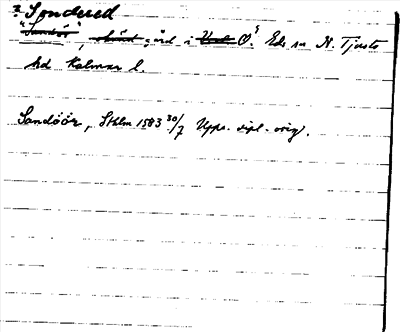 ? Sondered
"Sandör", okänd gård i Ö. Eds sn N. Tjusts
hd Kalmar l.
Sandöör, Sthlm 1583 30/7 Upps. dipl. orig.